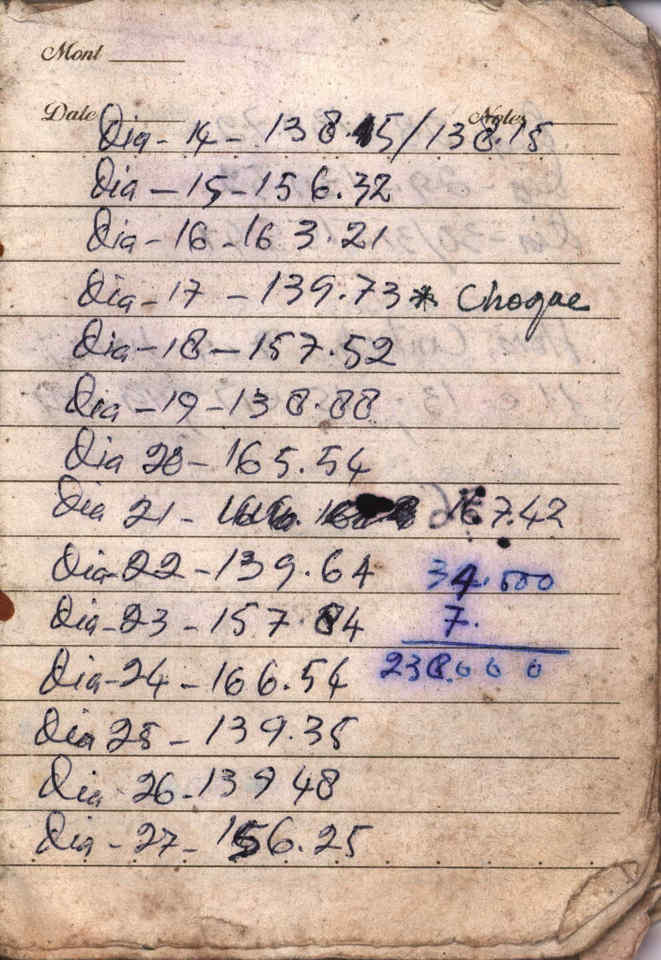 Mont
Date Notes
Dia - 14 - 138.45/138.15
Dia - 15 - 156.32
Dia - 16 - 163.21
Dia - 17 - 139.73 * Choque
Dia - 18 - 157.52
Dia - 19 - 138.88
Dia 20 - 165.54
Dia 21 - 167.42
Dia - 22 - 139.64 34.000
Dia - 23 - 157.84 7.
Dia - 24 - 166.54 238.000
Dia 25 - 139.35
Dia - 26 - 139 48
Dia - 27 - 156.25